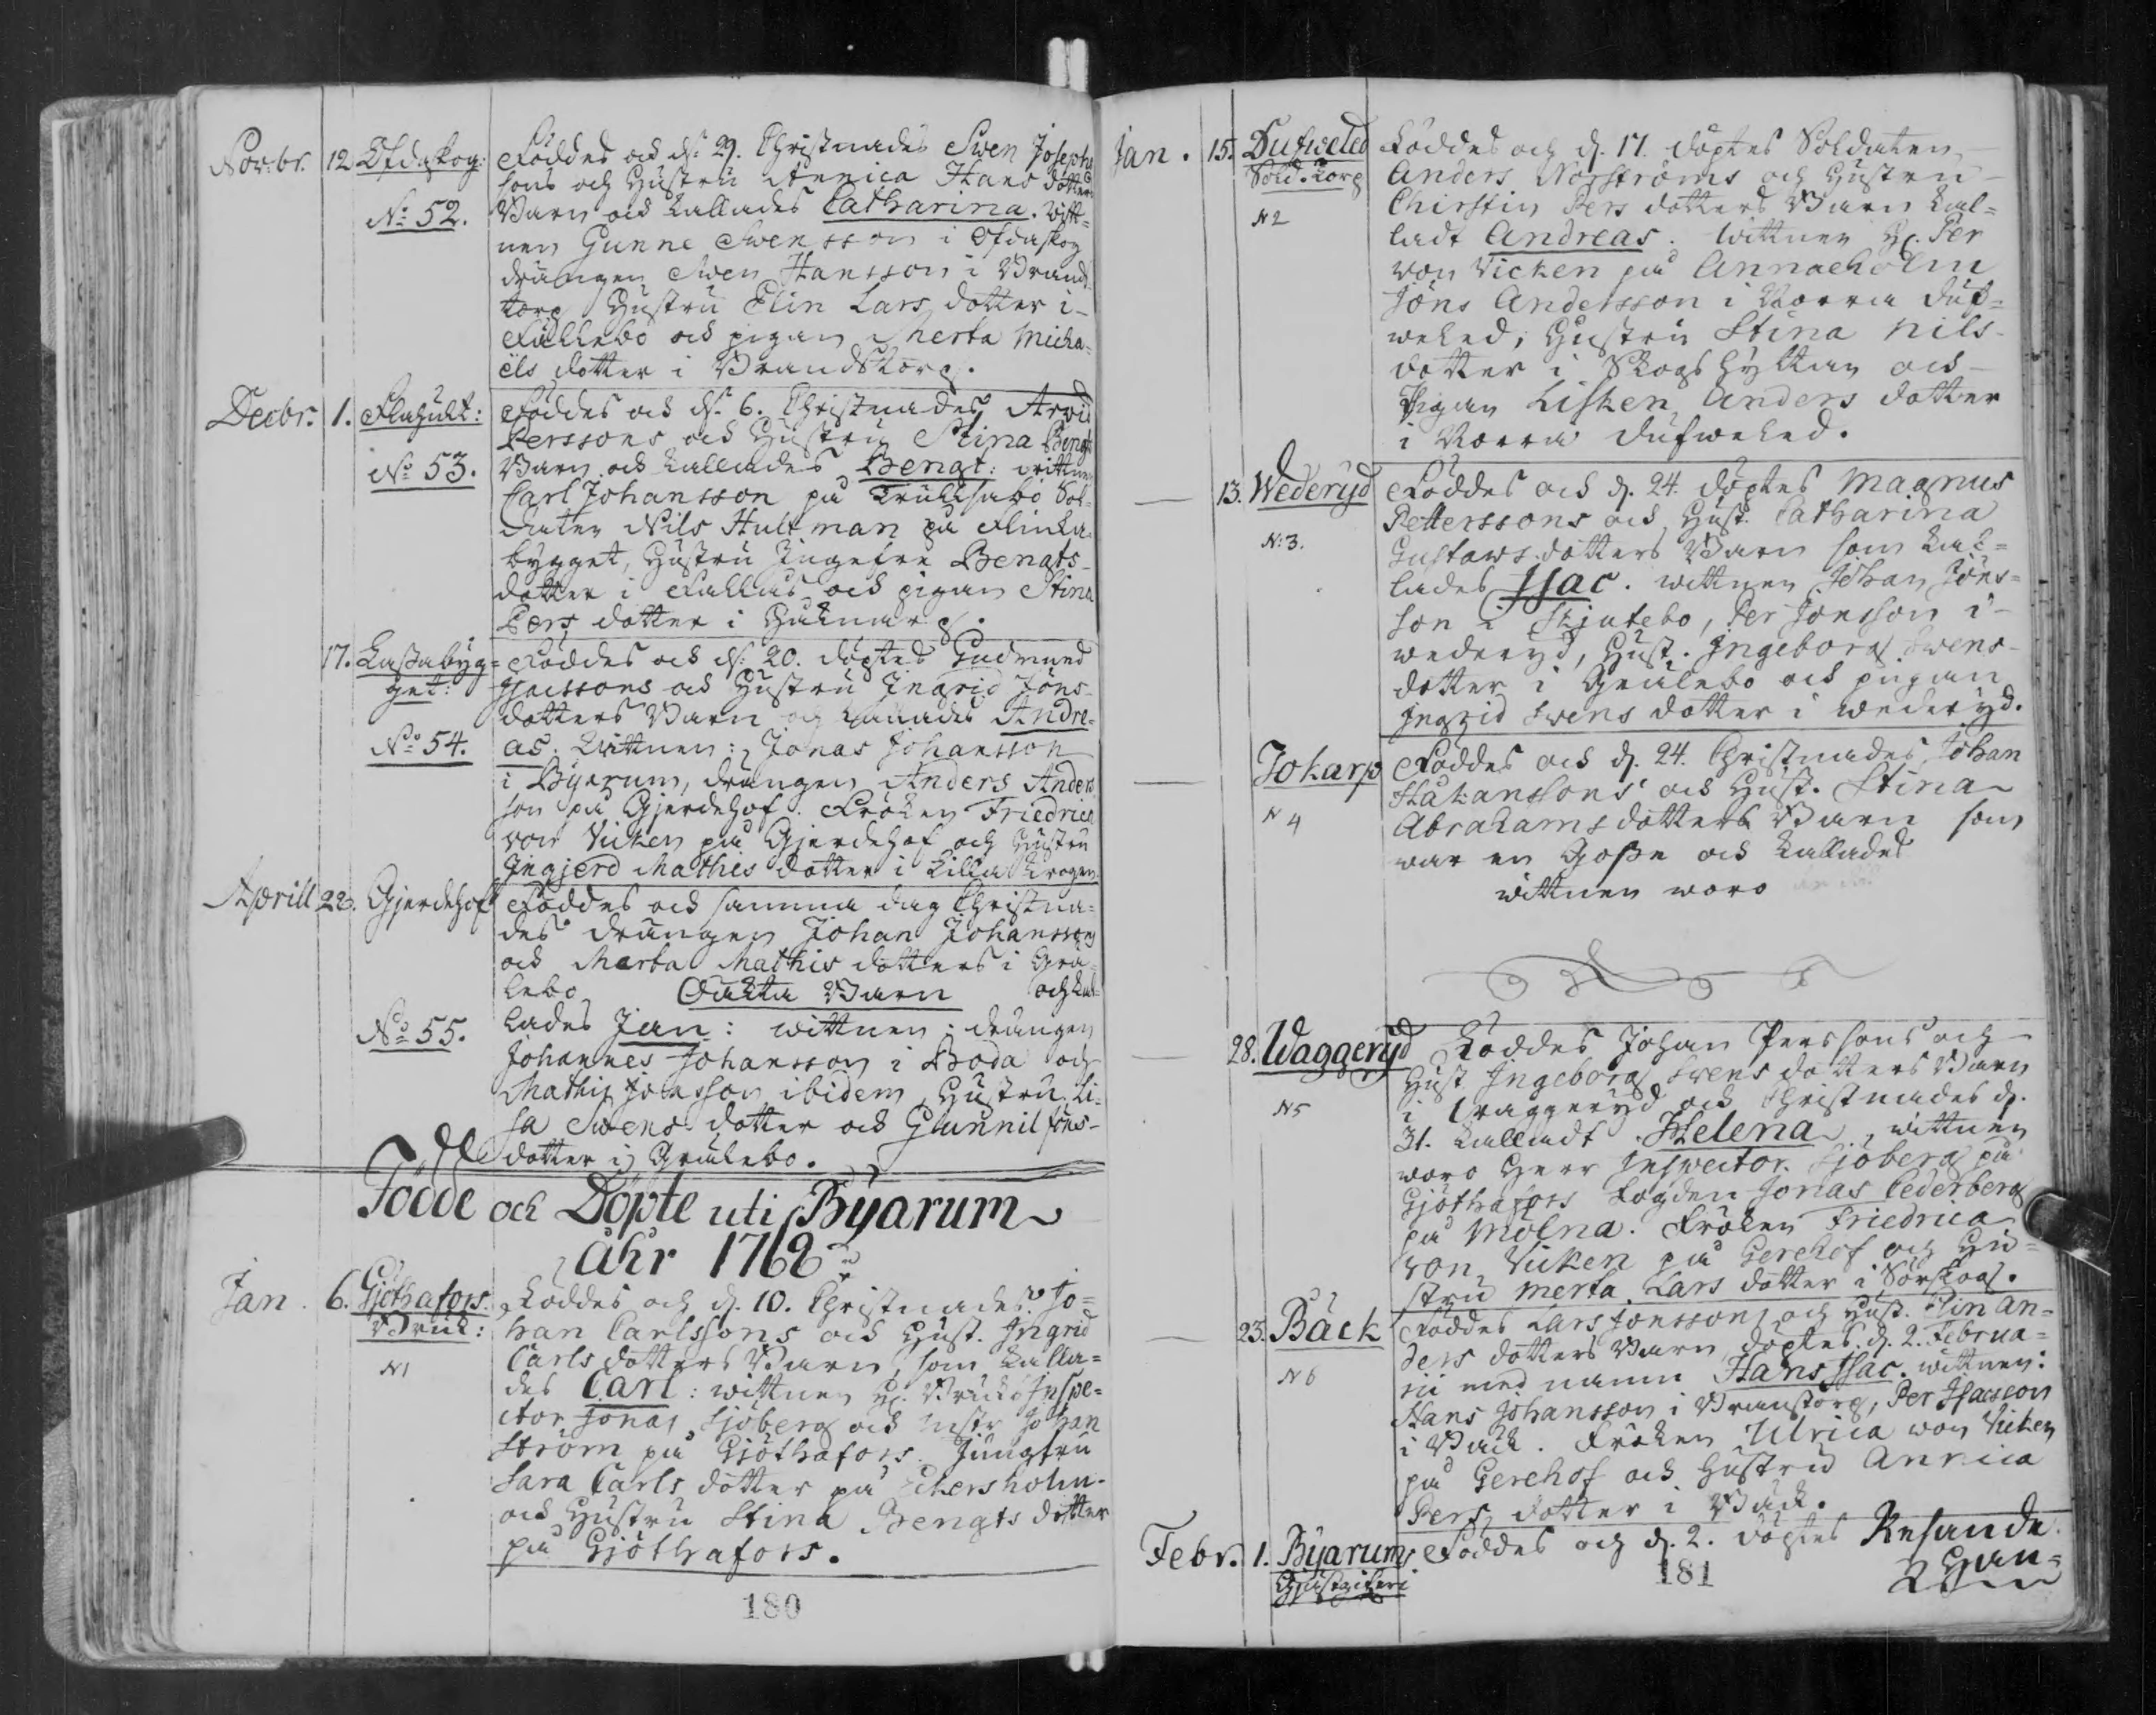 Novbr. 12 Ofdaskog: Föddes ock d: 29. Christnades Swen Josephs
sons och Hustru Annica Hans dotters
No 52. Barn ock kallades Catharina. Witt=
nen Gunne Swensson i Ofdaskog
drängen Swen Hansson i Brands
torp Hustru Elin Lars dotter i
Fällebo ock pigan Merta Micha=
els dotter i Brandstorp.
Decbr. 1. Flahult: Föddes ock d. 6. Christnades Arvid
Perssons ock Hustru Stina Bengts
No 53. Barn ock kallades Bengt: wittnen
Carl Johansson på Trullsabo Sol-
daten Nils Hultman på Flinka
bygget, Hustru Ingefre Bengts-
dotter i ock pigan Stina
Pers dotter i
17. Lassabyg= Föddes ock d: 20. döptes Gudmund
get: Isacssons ock Hustru Ingrid Jöns-
dotters Barn och kallades Andre=
No 54. as. Wittnen: Jonas Johansson
i Byarum, drängen Anders Anders
son på Gjerdehof. Fröken Friedrica
von Vicken på Gjerdehof och Hustru
Ingjerd Mathis dotter i Lilla Krogen.
Aprill 22. Gjerdehof Föddes ock samma dag Christna=
des drängen Johan Johanssons
ock Marta Mathis dotters i Grä
lebo Oäkta Barn och kal=
No 55. lades Jan: wittnen: drängen
Johannes Johansson i Boda och
Mathis Jonsson ibidem, Hustru Li=
sa Swens dotter ock Gunnil Jöns-
dotter i Grälebo.
Födde och Döpte uti Byarum
åhr 1768
Jan. 6. Gjöthafors Föddes och d. 10. Christnades Jo=
Bruk: han Carlssons ock Hust. Ingrid
N1 Carls dotters Barn som kalla=
des Carl: wittnen H. Bruks Inspe=
ctor Jonas Sjöberg ock Mstr Johan
Ström på Gjöthafors. Jungfru
Sara Carls dotter på Ekersholm
ock Hustru Stina Bengts dotter
på Gjöthafors.
180
Jan. 15. Dufweled Föddes och d. 17. döptes Soldaten
Sold. torp Anders Norströms och Hustru
N2 Chirstin Pers dotters Barn kal=
ladt Andreas. Wittnen H. Per
von Vicken på Annaeholm
Jöns Andersson i Norra Duf=
weled, Hustru Stina Nils-
dotter i Skogshyttan ock
Pigan Lisken Anders dotter
i Norra Dufweled.
13. Wederyd Föddes ock d. 24. döptes Magnus
Petterssons ock Hust. Catharina
N:3. Gustaws dotters Barn som kal=
lades Isac. wittnen Johan Jöns=
son i Skjutebo, Per Jonsson i
wederyd, Hust. Ingeborg Swens-
dotter i Grälebo ock pigan
Ingrid Swens dotter i wederyd.
Jokarp Föddes ock d. 24. Christnades Johan
Håkanssons ock Hust. Stina
N 4 Abrahams dotters Barn som
war en Gosse ock kallades
wittnen woro
28. Waggeryd Föddes Johan Perssons och
Hust Ingeborg Swens dotters Barn
N5 i Waggeryd ock Christnades d.
31. kalladt Helena. wittnen
woro Herr Inspector Sjöberg på
Gjöthafors Fogden Jonas Cederberg
på Mölna. Fröken Friedrica
von Vicken på Gerehof och Hu=
stru Merta Lars dotter i Sörskog.
23. Bäck Föddes Lars Jonssons och Hust. Elin An=
ders dotters Barn, döptes d. 2. Februa=
N6 rii med namn Hans Isac. wittnen:
Hans Johansson i Branstorp, Per Isacsson
i Bäck. Fröken Ulrica von Vicken
på Gerehof ock Hustru Annica
Pers dotter i Bäck.
Febr. 1. Byarums Föddes och d. 2. döptes Resande
Gjästgiferi Han=
181